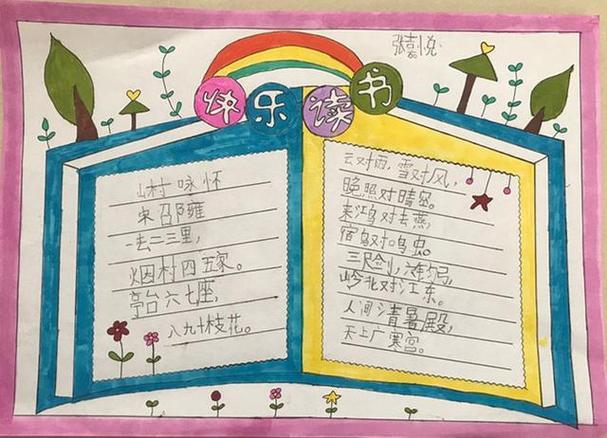 张喜悦
快乐读书
山村咏怀
宋邵雍
一去二三里,
烟村四五家。
亭台六七座,
八九十枝花。
云对雨,雪对风,
晚照对晴空。
来鸿对去燕,
宿鸟对鸣虫。
三尺剑,六钧弓,
岭北对江东。
人间清暑殿,
天上广寒宫。